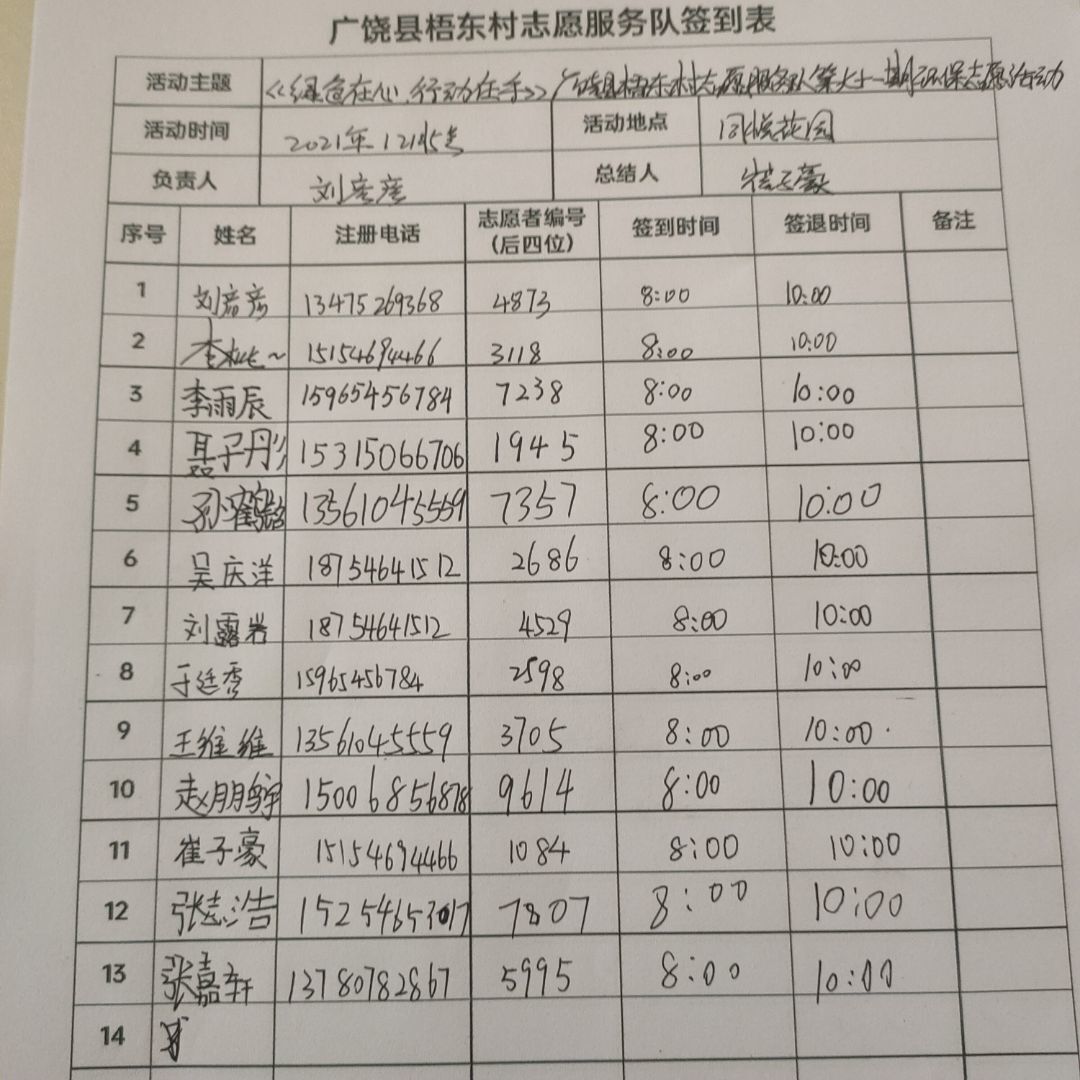 广饶县梧东村志愿服务队签到表
活动主题 《绿色在心,行动在手》广饶县梧东村志愿服务队第六十一期环保志愿活动
活动时间 2021年12月5号 活动地点 同悦花园
负责人 刘彦彦 总结人 崔子豪
序号 姓名 注册电话 志愿者编号(后四位) 签到时间 签退时间 备注
1 刘彦彦 13475269368 4873 8:00 10:00
2 李 15154694466 3118 8:00 10:00
3 李雨辰 15965456784 7238 8:00 10:00
4 聂子彤 15315066706 1945 8:00 10:00
5 孙 13561045559 7357 8:00 10:00
6 吴庆洋 18754641512 2686 8:00 10:00
7 刘露岩 18754641512 4529 8:00 10:00
8 于廷秀 15965456784 2598 8:00 10:00
9 王维维 13561045559 3705 8:00 10:00
10 赵朋 15006856878 9614 8:00 10:00
11 崔子豪 15154694466 1084 8:00 10:00
12 张志浩 15254653017 7807 8:00 10:00
13 张嘉轩 13780782867 5995 8:00 10:00
14